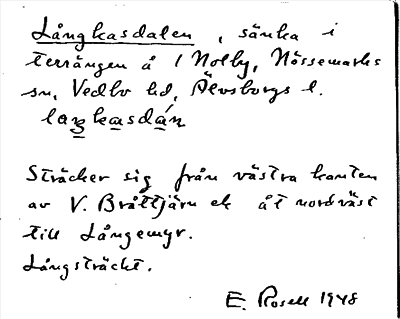 Långkasdalen, sänka i
terrängen å 1 Nolby, Nössemarks
sn, Vedbo hd, Älvsborgs l.
laŋkasdán
Sträcker sig från västra kanten
av V. Bråttjärn ek åt nordväst
till Långemyr.
Långsträckt.
E. Rosell 1948